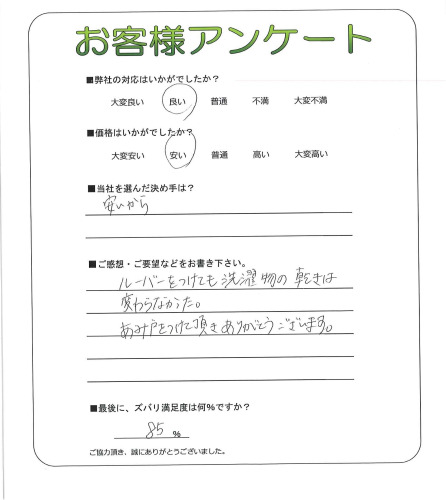 お客様アンケート
■弊社の対応はいかがでしたか?
大変良い 良い 普通 不満 大変不満
■価格はいかがでしたか?
大変安い 安い 普通 高い 大変高い
■当社を選んだ決め手は?
安いから
■ご感想・ご要望などをお書き下さい。
ルーバーをつけても洗濯物の乾きは
変わらなかった。
あみ戸をつけて頂きありがとうございます。
■最後に、ズバリ満足度は何%ですか?
85 %
ご協力頂き、誠にありがとうございました。